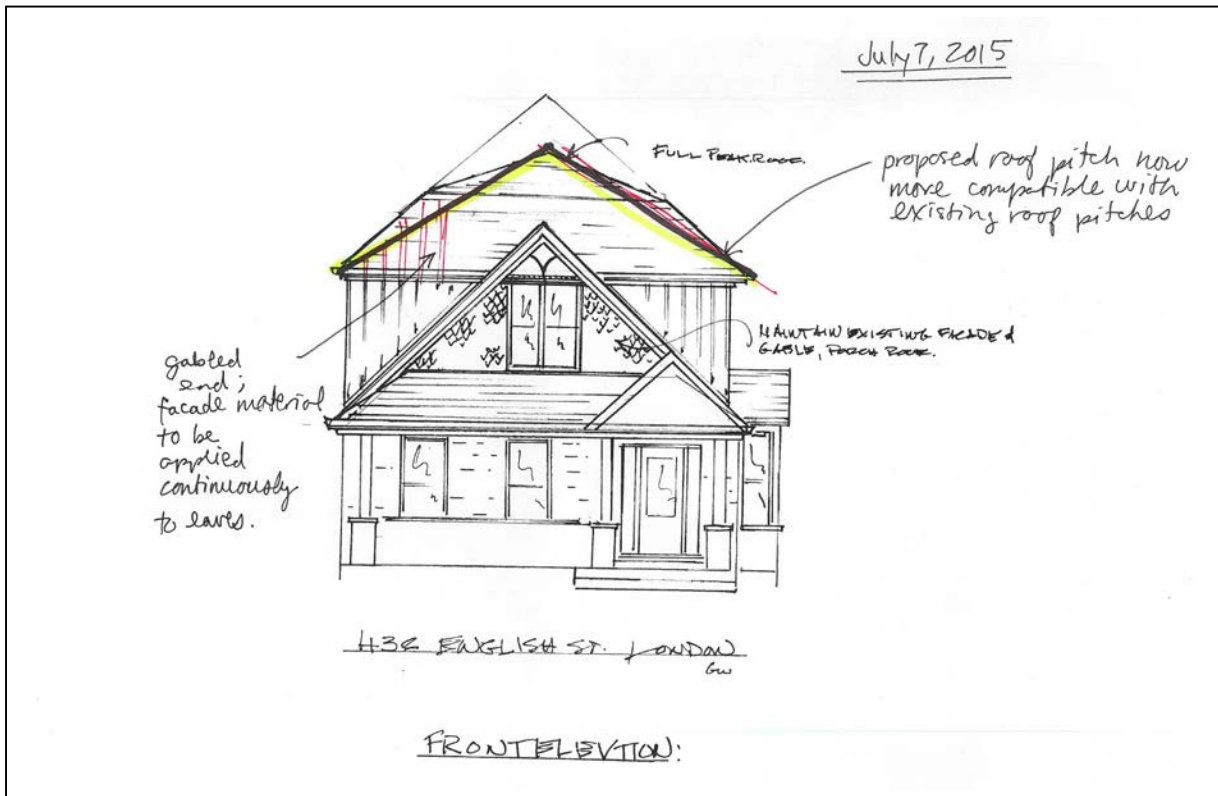 July 7, 2015
FULL PEAK ROOF.
proposed roof pitch now
more compatible with
existing roof pitches
MAINTAIN EXISTING FACADE &
GABLE, PORCH ROOF.
gabled
end;
facade material
to be
applied
continuously
to eaves.
ENGLISH ST. LONDON
GW
FRONT ELEVTION: